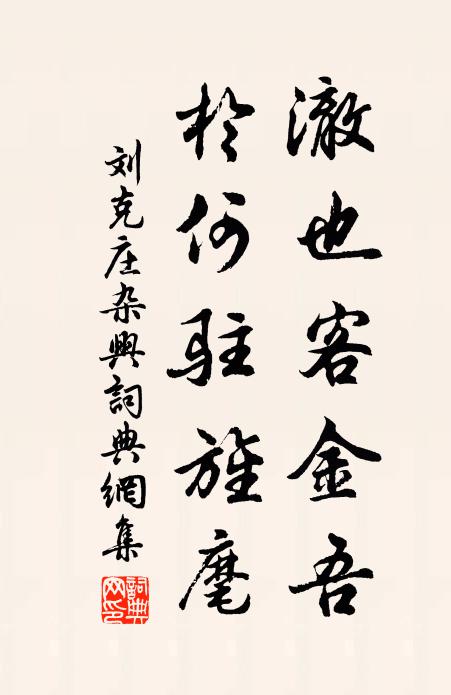 澈也客金吾
於何駐旌麾
刘克庄杂興詞典網集
詞典网印